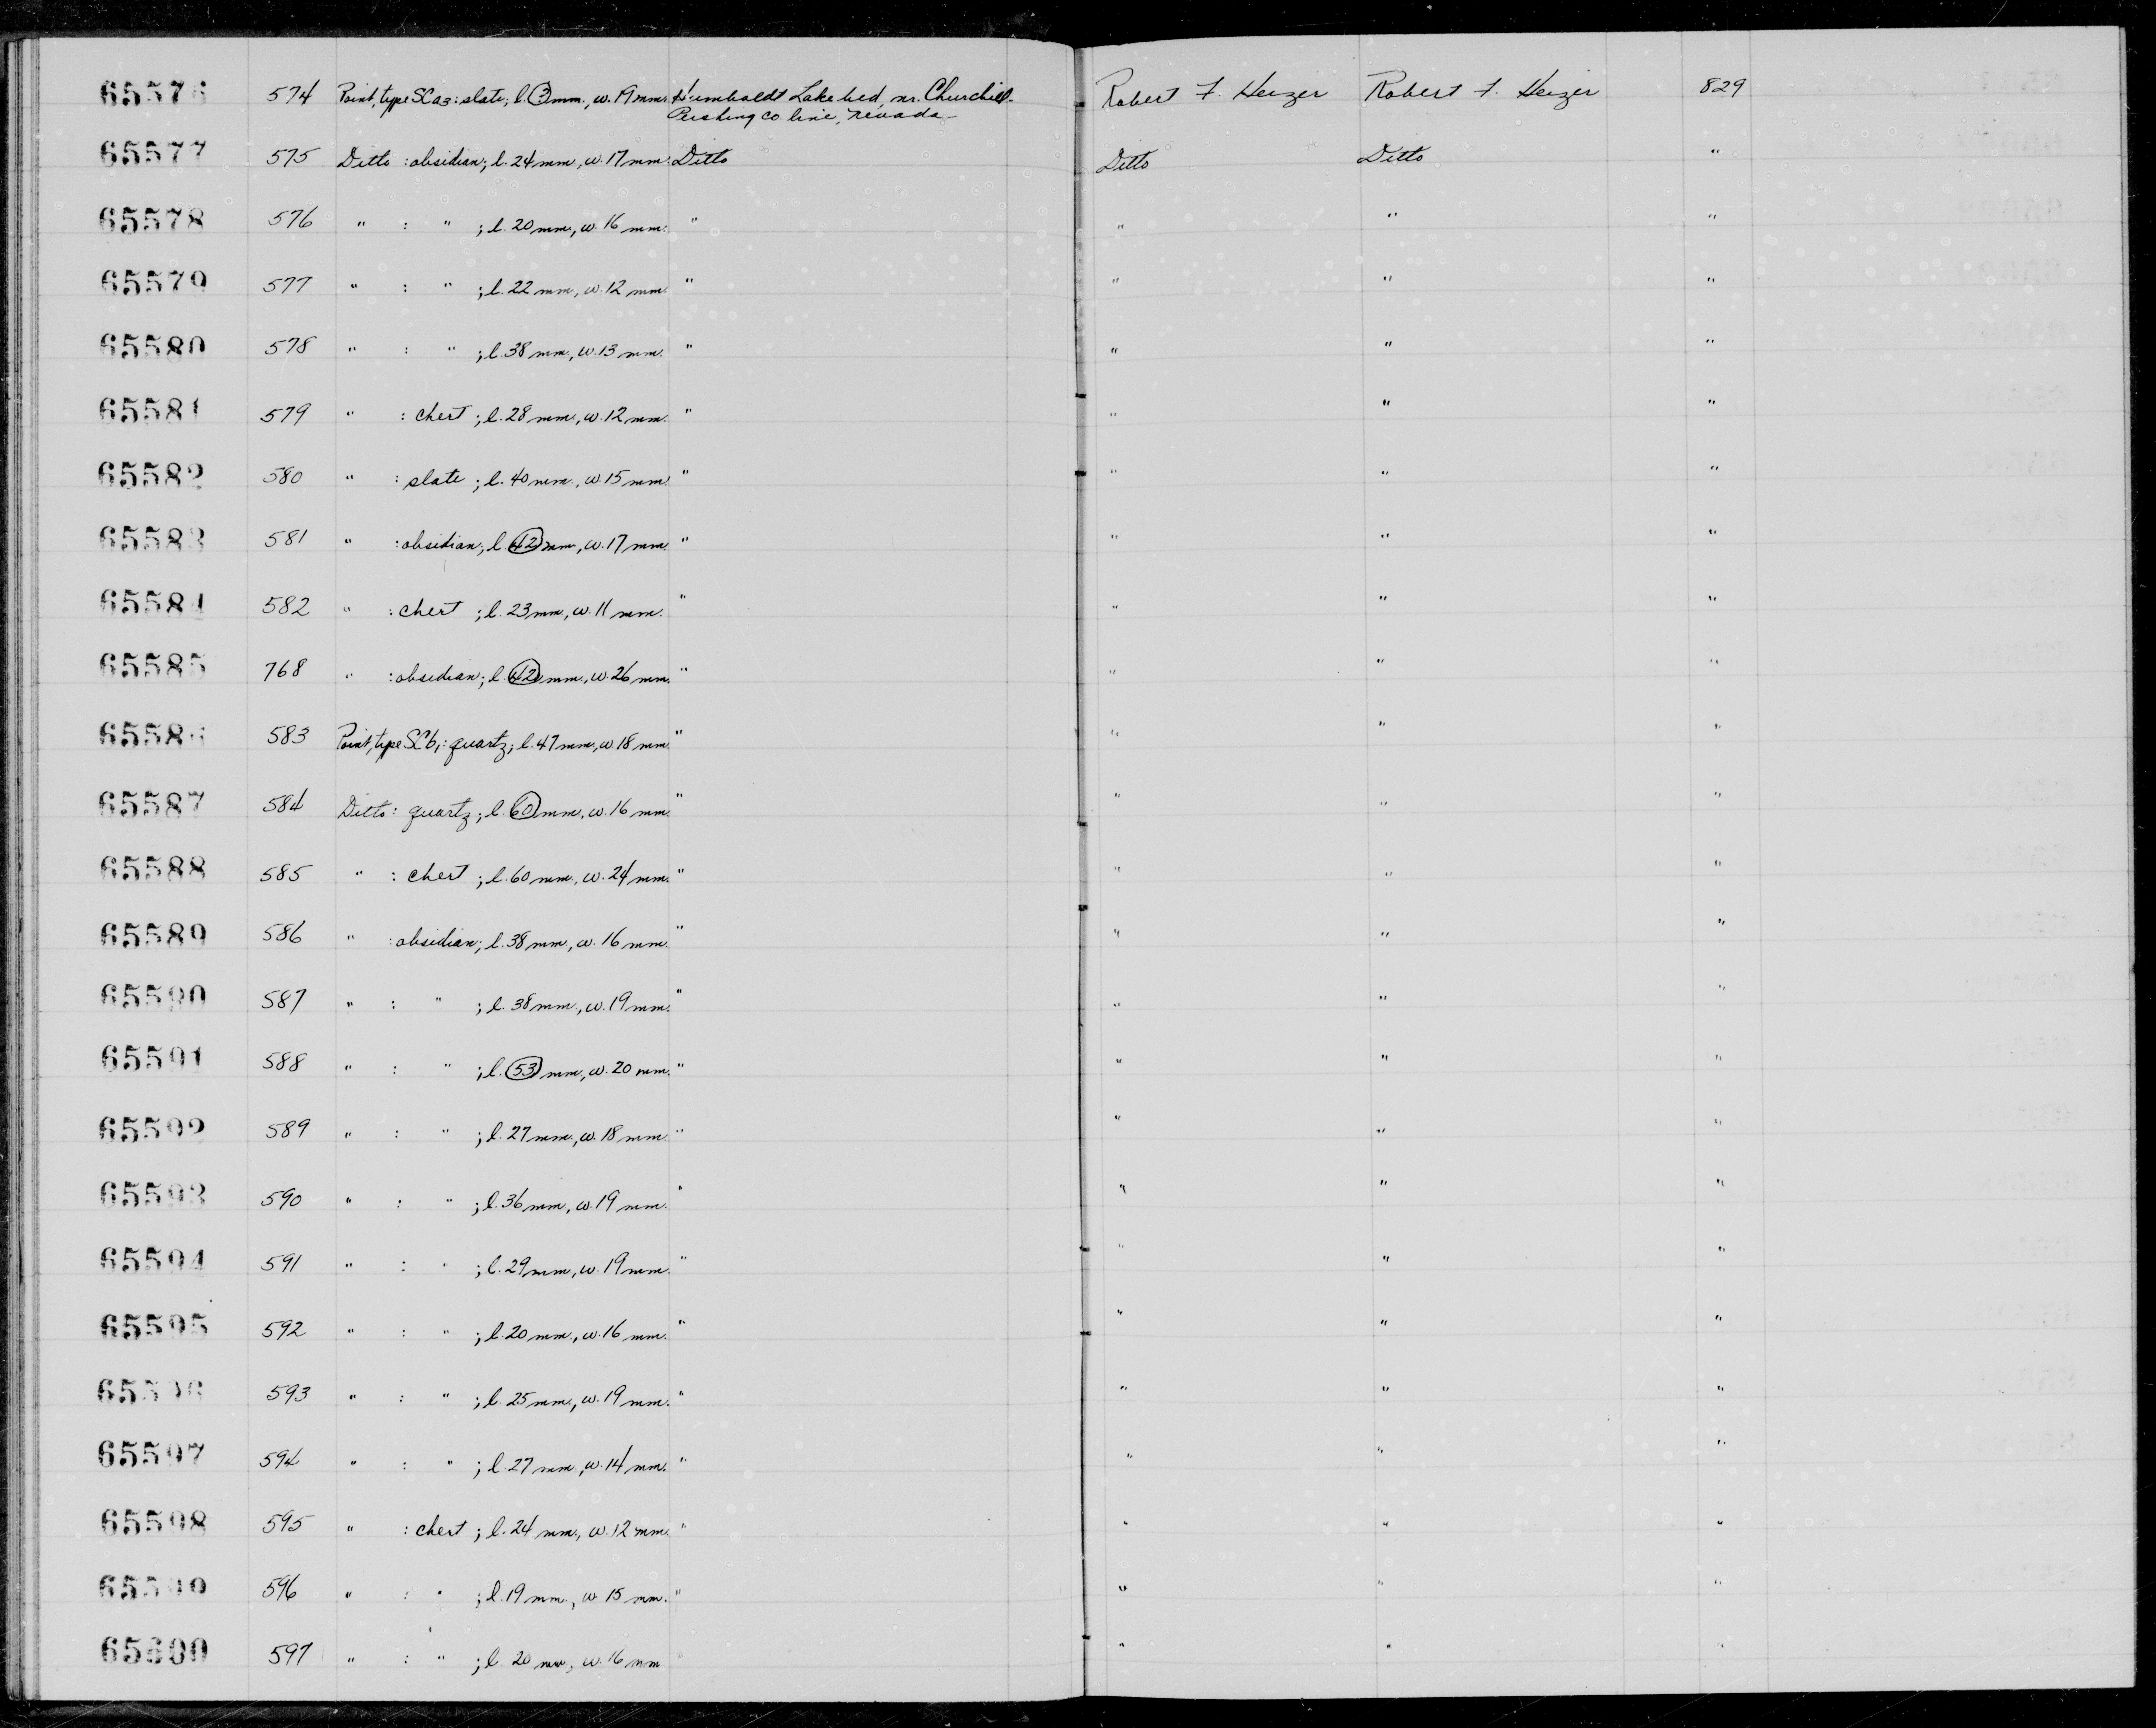 65576 574 Point, type SCa3: slate; l. mm., w. 19 mm. Humboldt Lake bed, nr. Churchill- Robert F. Heizer Robert F. Heizer 829
Pershing Co line, Nevada
65577 575 Ditto : obsidian; l. 24 mm, w. 17 mm. Ditto Ditto Ditto "
65578 576 " : " ; l. 20 mm, w. 16 mm. " " " "
65579 577 " : " ; l. 22 mm, w. 12 mm. " " " "
65580 578 " : " ; l. 38 mm, w. 13 mm. " " " "
65581 579 " : chert ; l. 28 mm, w. 12 mm. " " " "
65582 580 " : slate ; l. 40 mm., w. 15 mm. " " " "
65583 581 " : obsidian; l. 42 mm, w. 17 mm. " " " "
65584 582 " : chert ; l. 23 mm, w. 11 mm. " " " "
65585 768 " : obsidian; l. 42 mm., w. 26 mm. " " " "
65586 583 Point, type SCb1: quartz; l. 47 mm, w. 18 mm. " " " "
65587 584 Ditto: quartz; l. 60 mm, w. 16 mm. " " " "
65588 585 " : chert ; l. 60 mm, w. 24 mm. " " " "
65589 586 " : obsidian; l. 38 mm, w. 16 mm. " " " "
65590 587 " : " ; l. 38 mm, w. 19 mm. " " " "
65591 588 " : " ; l. 53 mm, w. 20 mm. " " " "
65592 589 " : " ; l. 27 mm, w. 18 mm. " " " "
65593 590 " : " ; l. 36 mm, w. 19 mm. " " " "
65594 591 " : " ; l. 29 mm, w. 19 mm. " " " "
65595 592 " : " ; l. 20 mm, w. 16 mm. " " " "
65596 593 " : " ; l. 25 mm, w. 19 mm. " " " "
65597 594 " : " ; l. 27 mm, w. 14 mm. " " " "
65598 595 " : chert ; l. 24 mm, w. 12 mm. " " " "
65599 596 " : " ; l. 19 mm, w. 15 mm. " " " "
65600 597 " : " ; l. 20 mm, w. 16 mm " " " "